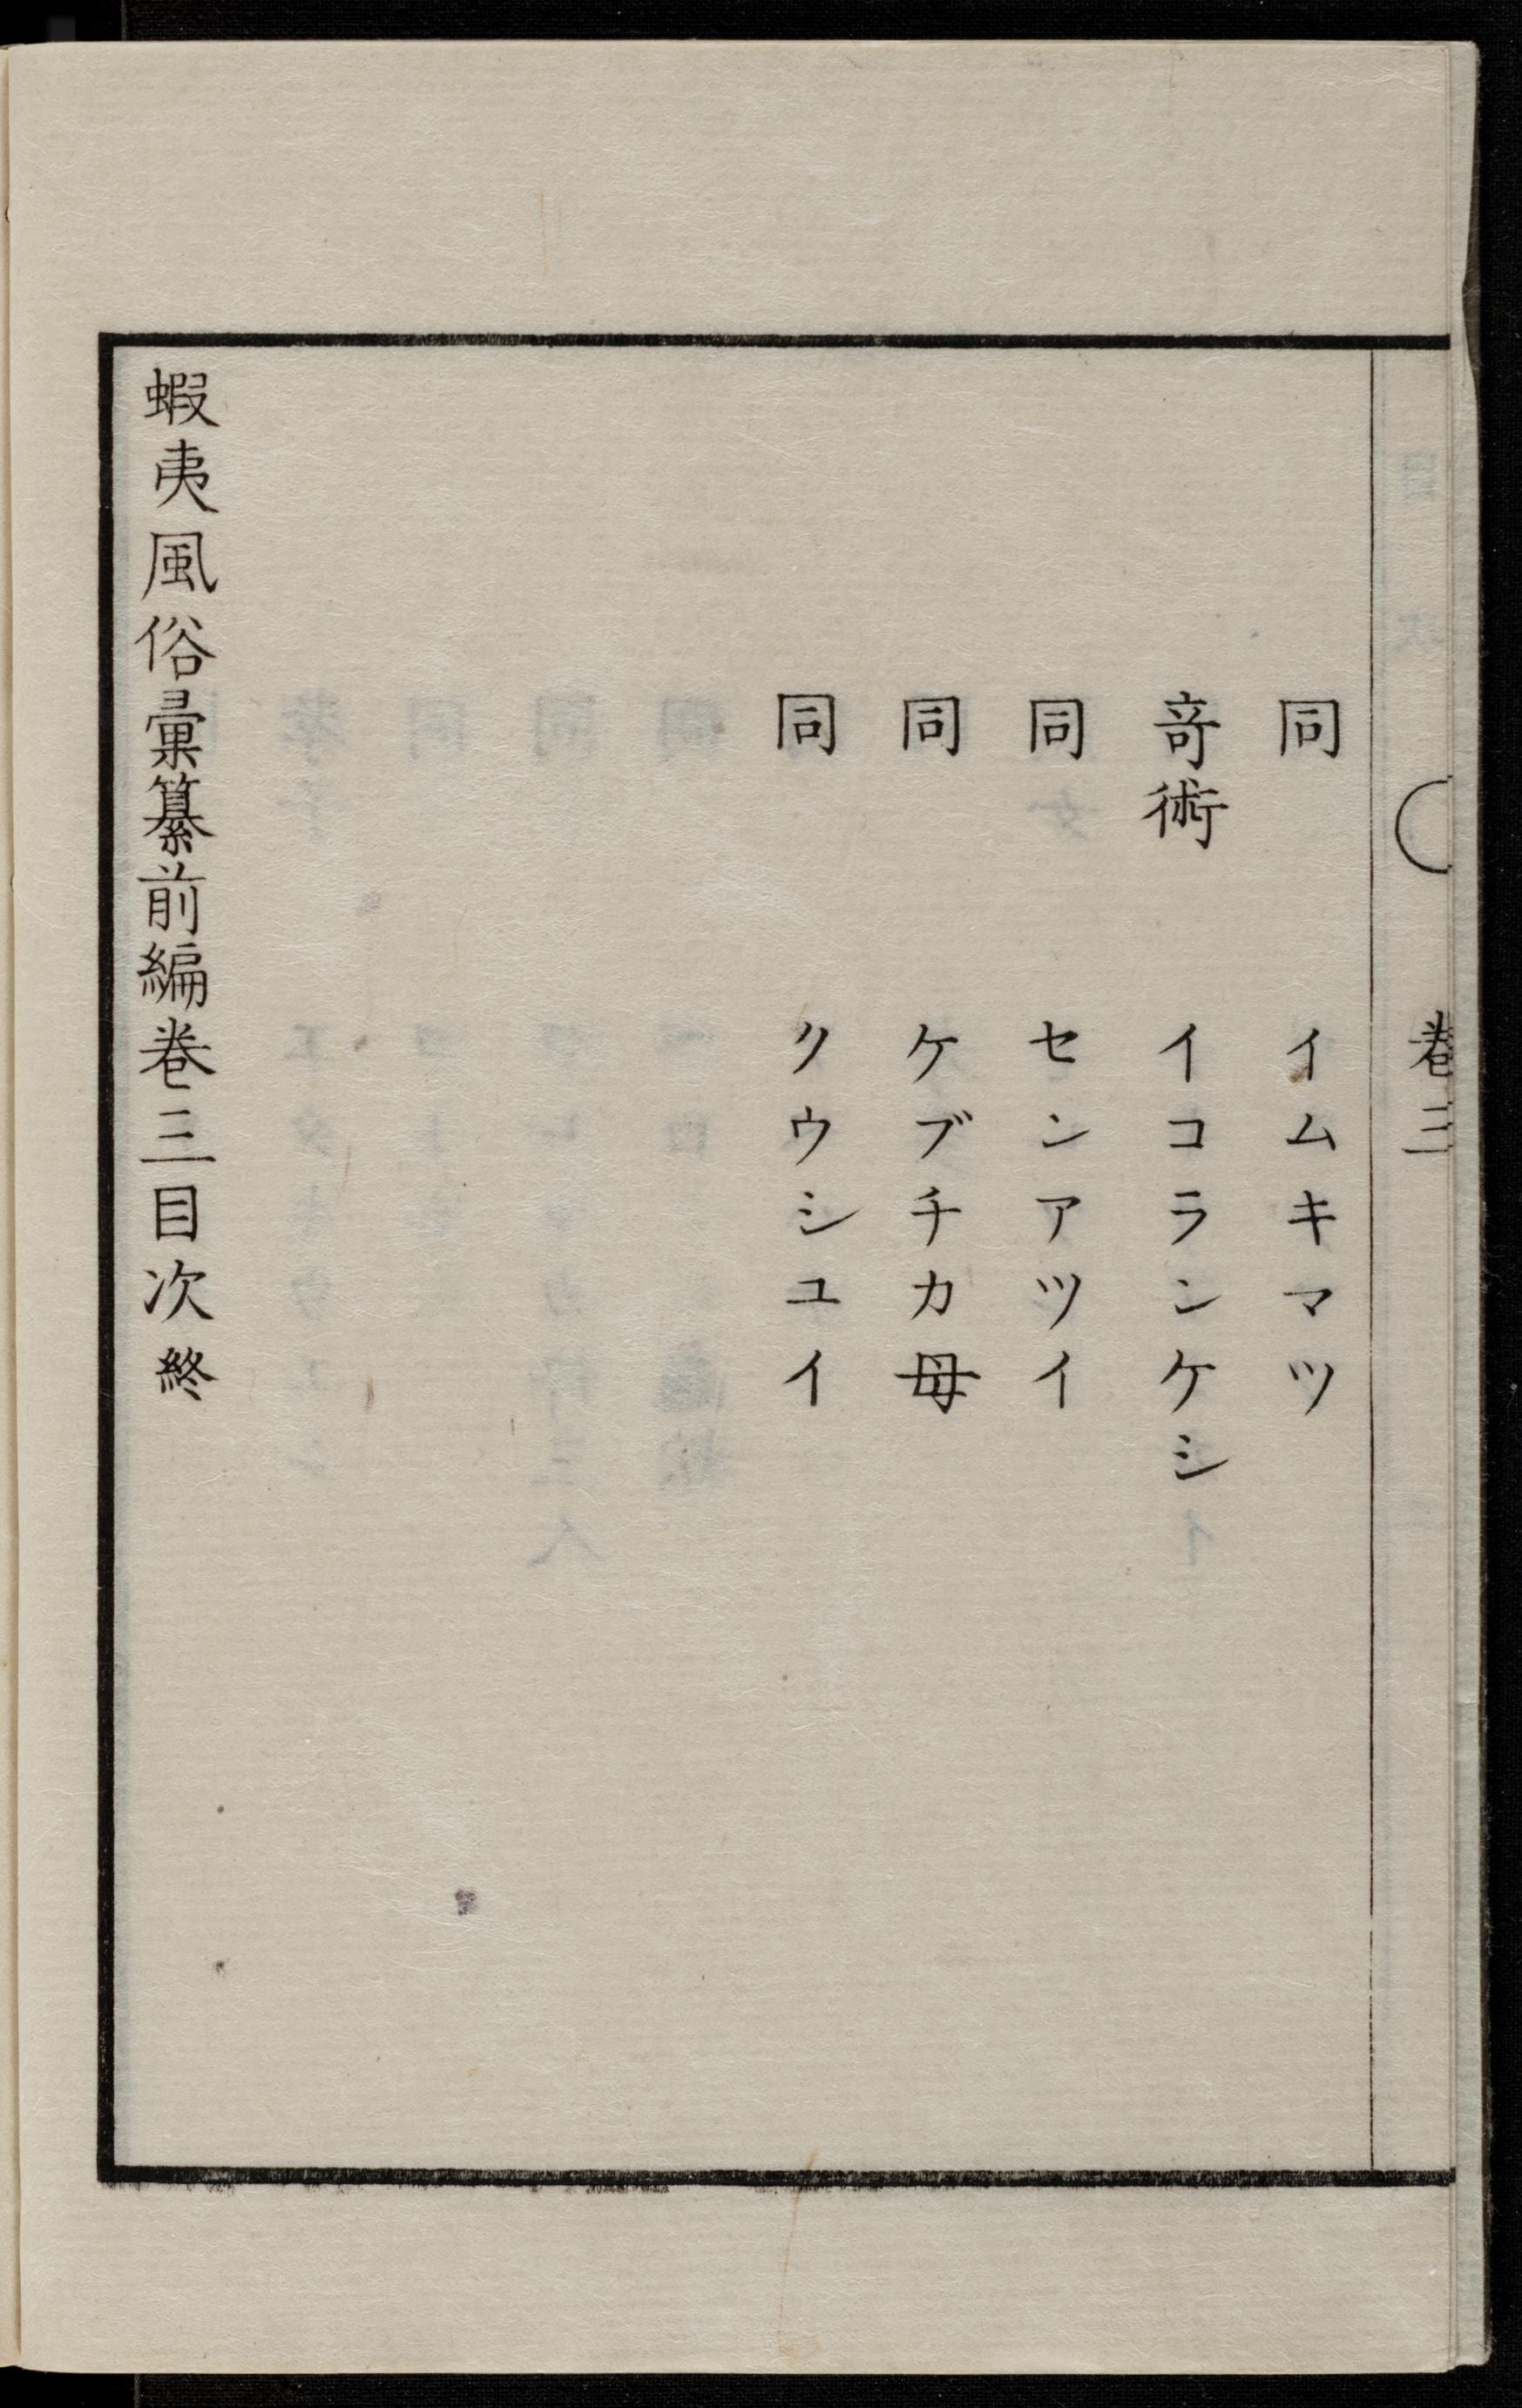 巻三
同　イムキマツ
竒術　イコランケシ
同　センアツイ
同　ケブチカ母
同　クウシユイ
蝦夷風俗彙纂前編巻三目次終